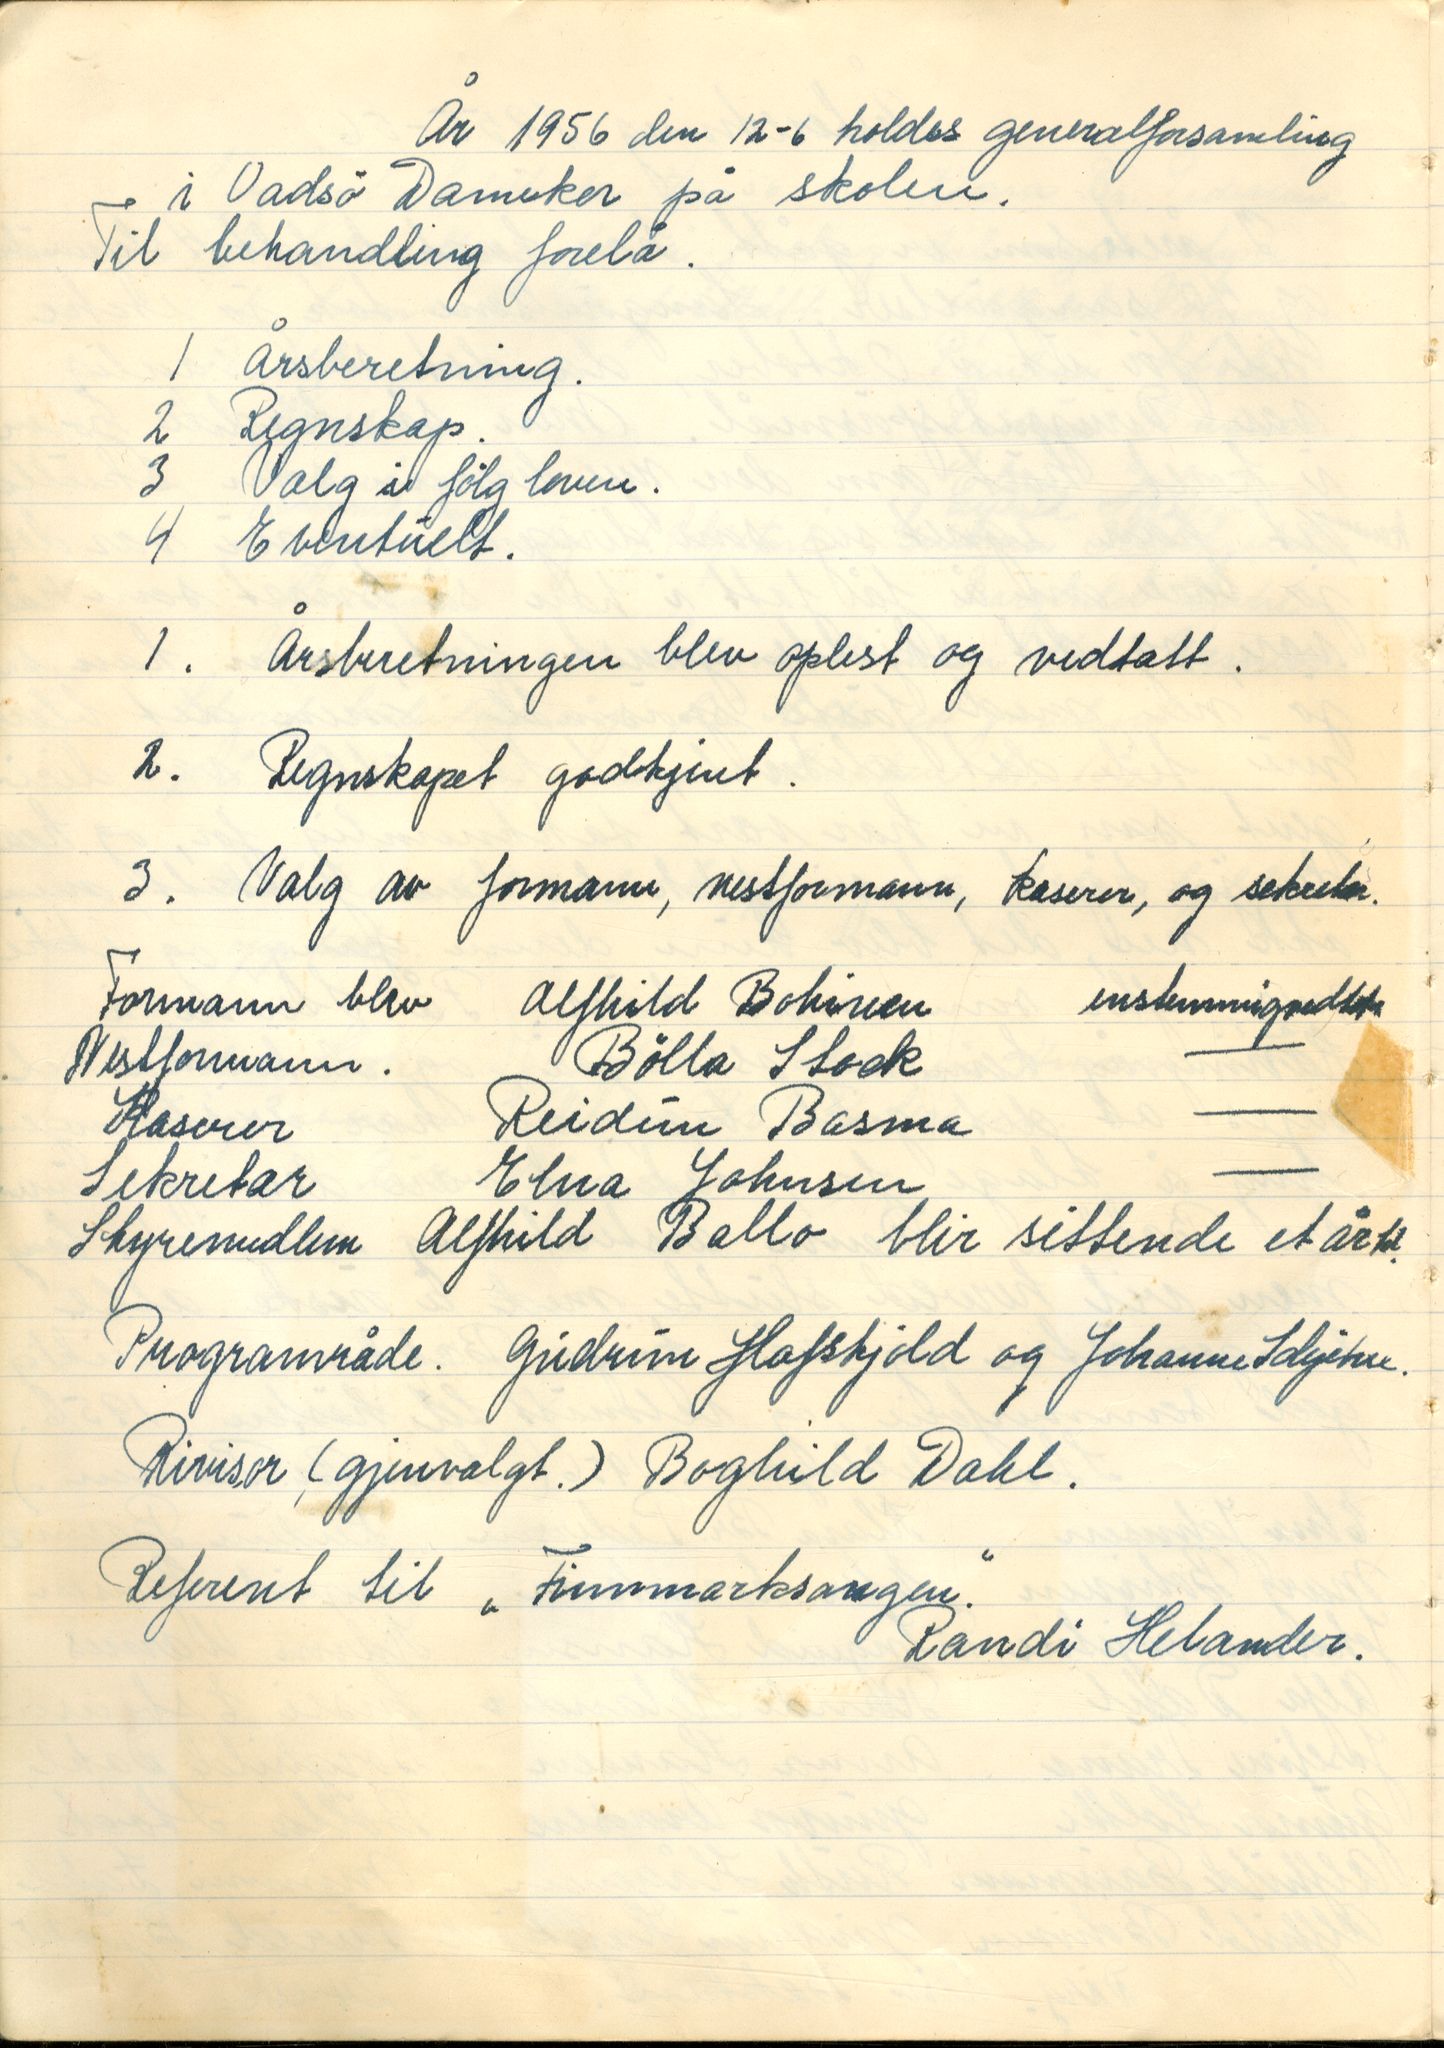 År 1956 den 12-6 holdes generalforsamling
i Vadsö Damekor på skolen.
Til behandling forelå.
1 Årsberetning.
2 Regnskap.
3 Valg i fölg loven.
4 Eventuelt.
1. Årsberetningen blev oplest og vedtatt.
2. Regnskapet godkjent.
3. Valg av formann, nestformann, kaserer, og sekretær.
Formann blev Alfhild Bohinen enstemmig vedtatt
Nestformann. Bölla Stock —
Kaserer Reidun Basma —
Sekretar Elna Johnsen —
Styremedlem Alfhild Ballo blir sittende et år til.
Programråde. Gudrun Hafskjold og Johanne
Rivisor, (gjenvalgt.) Boghild Dahl.
Referent til „Finnmarksangen."
Randi Helander.